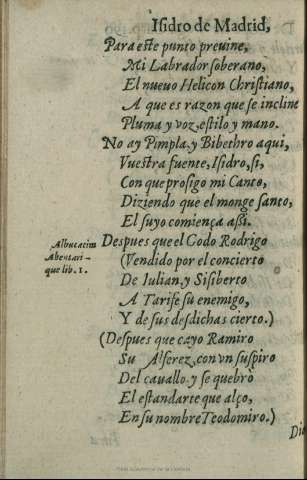 Isidro de Madrid,
Para este punto preuine,
Mi Labrador soberano,
El nueuo Helicon Christiano,
A que es razon que se incline
Pluma y voz, estilo y mano.
No ay Pimpla, y Bibethro aqui,
Vuestra fuente, Isidro, si,
Con que prosigo mi Canto,
Diziendo que el monge santo,
El suyo comiença assi.
Albucacim
Abentari-
que lib. 1.
Despues que el Godo Rodrigo
(Vendido por el concierto
De Iulian, y Sisiberto
A Tarife su enemigo,
Y de sus desdichas cierto.)
(Despues que cayo Ramiro
Su Alferez, con vn suspiro
Del cauallo, y se quebrò
El estandarte que alço,
En su nombre Teodomiro.)